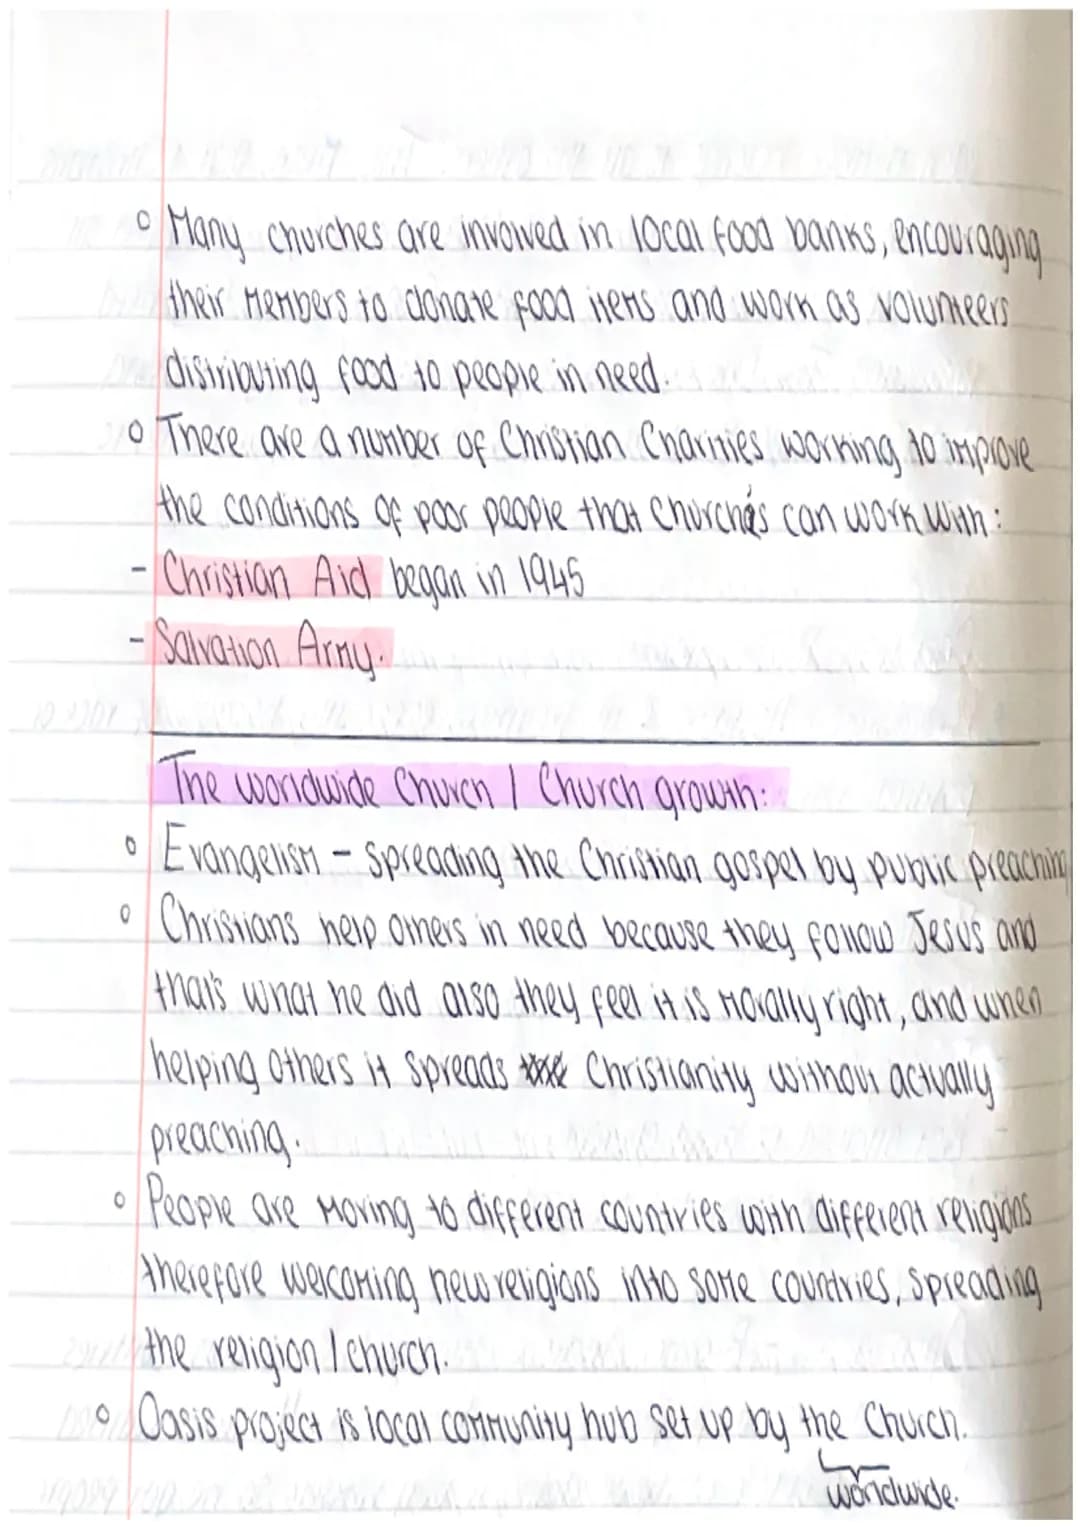 Many churches are involved in local food banks, encouraging
their members to donate food items and work as volunteers
distributing food to people in need.
There are a number of Christian Charities working to improve
the conditions of poor people that Churches can work with:
- Christian Aid began in 1945
- Salvation Army.
The worldwide Church / Church growth:
Evangelism - Spreading the Christian gospel by public preaching
Christians help others in need because they follow Jesus and
that's what he did also they feel it is morally right, and when
helping others it spreads Christianity without actually
preaching.
People are moving to different countries with different religions
therefore welcoming new religions into some countries, spreading
the religion / church.
Oasis project is local community hub set up by the Church.
worldwide.